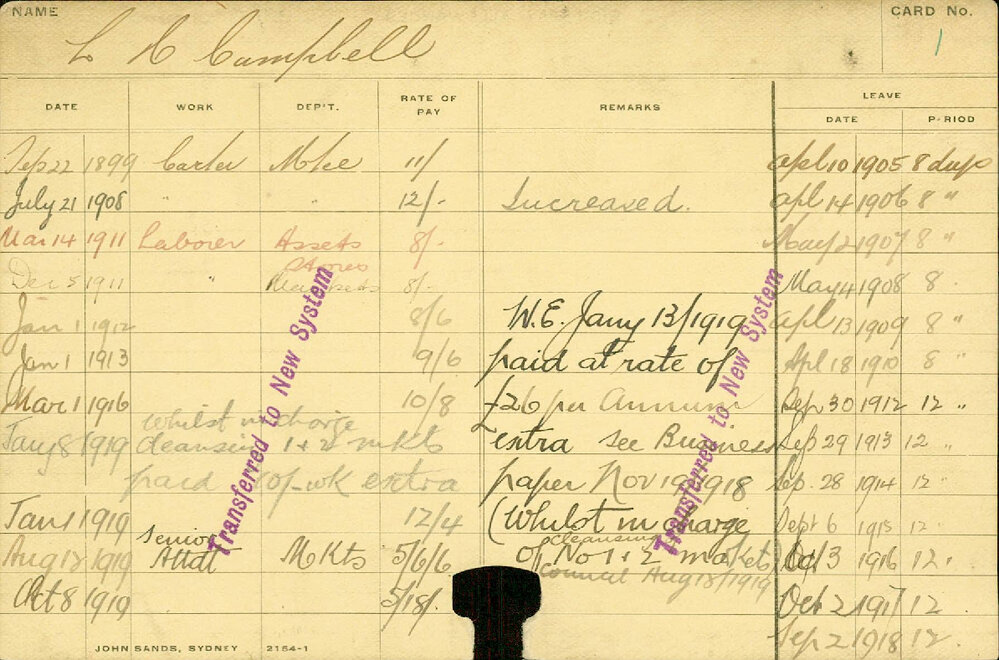 NAME
L C Campbell
CARD No.
1
DATE WORK DEP'T. RATE OF PAY REMARKS LEAVE
DATE P-RIOD
Sep 22 1899 Carter Mkt 11/ Apl 10 1905 8 days
July 21 1908 " " 12/- Increased. Apl 14 1906 8 "
Mar 14 1911 Laborer Assets 8/- May 2 1907 8 "
Stores
Dec 5 1911 " 8/- May 4 1908 8 "
Jan 1 1912 8/6 W.E. Jany 13/1919 Apl 13 1909 8 "
Jan 1 1913 9/6 paid at rate of Apl 18 1910 8 "
Mar 1 1916 10/8 £26 per Annum Sep 30 1912 12 "
whilst in charge
Jany 8 1919 cleansing 1 + 2 mkts extra see Business Sep 29 1913 12 "
paid of wk extra paper Nov 1918 Sep 28 1914 12 "
Jan 1 1919 12/4 (Whilst in charge Sept 6 1915 12
Senior cleansing
Aug 1919 Attdt Mkts 5/6/6 of No 1 + 2 markets) Oct 3 1916 12 "
Council Aug 18/1919
Oct 8 1919 5/18/- Oct 2 1917 12
Sep 2 1918 12
Transferred to New System
Transferred to New System
JOHN SANDS, SYDNEY 2154-1